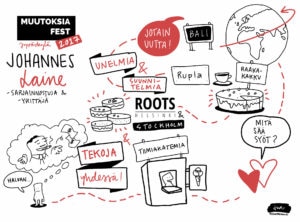 MUUTOKSIA
FEST
Jyväskylä
2017
JOHANNES
Laine
- SARJAINNOSTUJA &
- YRITTÄJÄ
JOTAIN
UUTTA!
BALI
UNELMIA
&
SUUNNI-
TELMIA
Rupla
RAAKA-
KAKKU
ROOTS
HELSINKI
&
STOCKHOLM
MITÄ
SÄÄ
SYÖT?
HALUAN..
TEKOJA
yhdessä!
TIIMIAKATEMIA